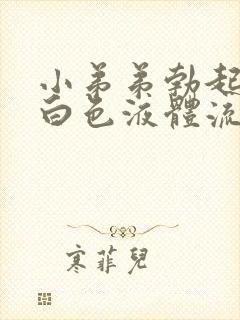 小弟弟勃起
白色液體流
寒菲兒